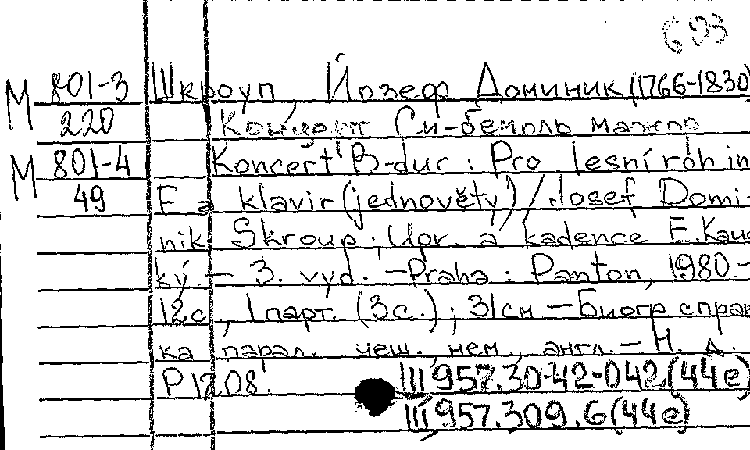 693
М 801-3 Шкроуп, Йозеф Доминик (1766-1830)
220 Концерт Си-бемоль мажор
М 801-4 Koncert B-dur : Pro lesní roh in
49 F a klavír (jednověty) / Josef Domi-
nik Škroup ; Upr. a kadence E. Kau
ký. – 3. vyd. – Praha : Panton, 1980 –
12 с., 1 парт. (3 с.) ; 31 см – Биогр. справ
ка парал. чеш., нем., англ. – Н. д.
P 1208. III 957.30-42-042 (44e)
III 957.309.6 (44e)